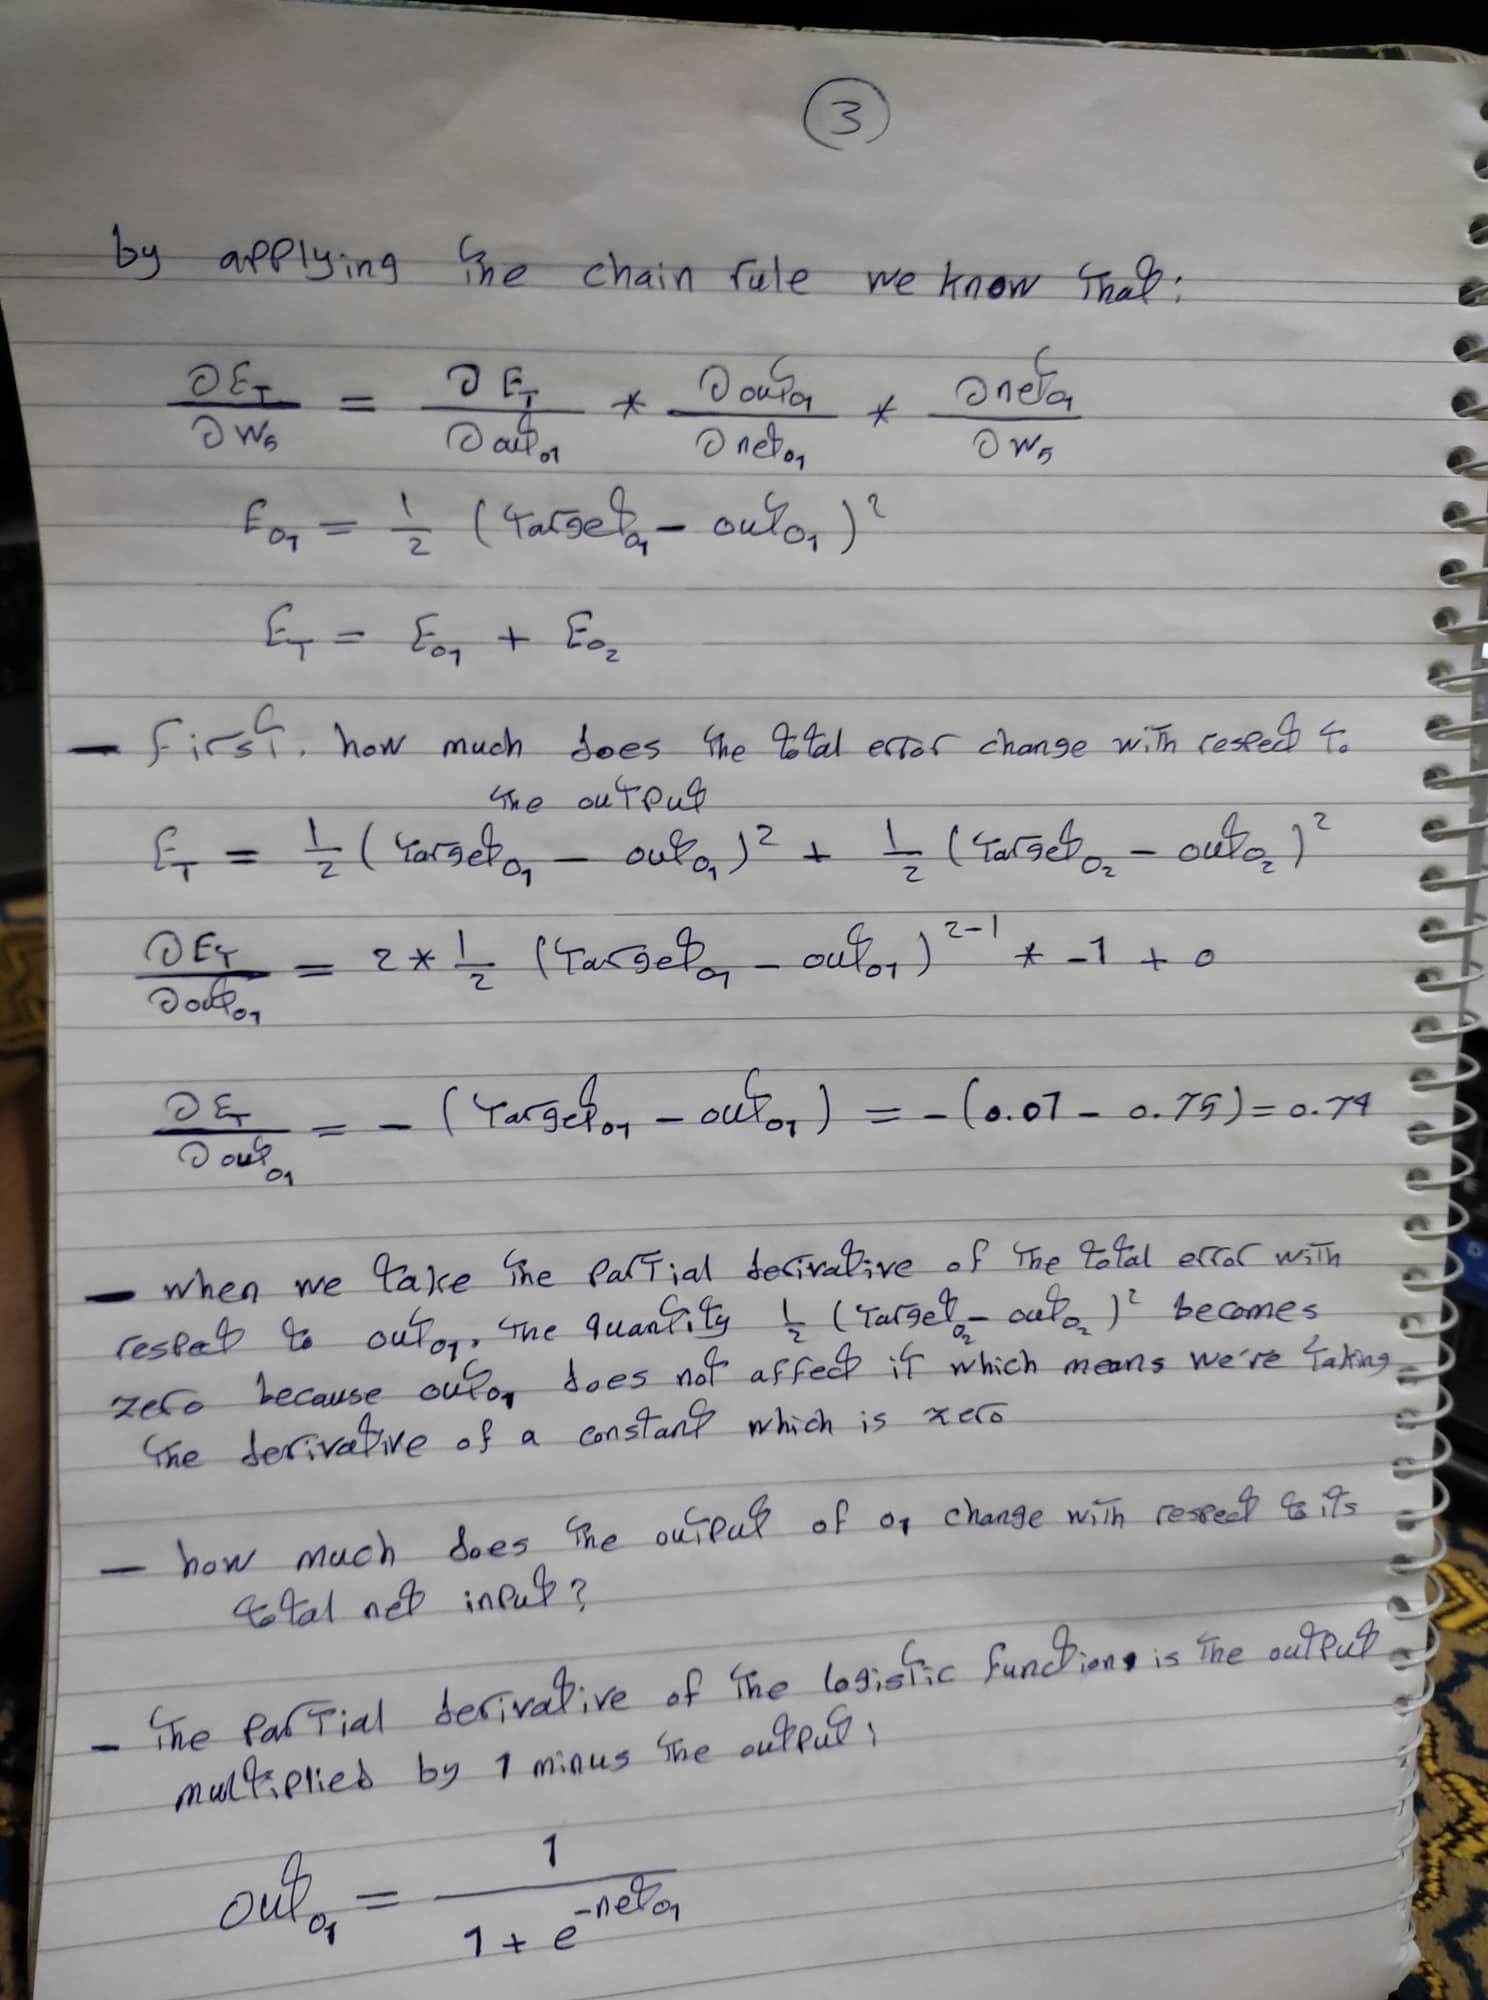 3
by applying the chain rule we know that:
∂E_T/∂w₅ = ∂E_T/∂out_o1 * ∂out_o1/∂net_o1 * ∂net_o1/∂w₅
E_o1 = 1/2 (Target_o1 - out_o1)²
E_T = E_o1 + E_o2
- first, how much does the total error change with respect to
the output
E_T = 1/2 (Target_o1 - out_o1)² + 1/2 (Target_o2 - out_o2)²
∂E_T/∂out_o1 = 2 * 1/2 (Target_o1 - out_o1)²⁻¹ * -1 + 0
∂E_T/∂out_o1 = - (Target_o1 - out_o1) = - (0.01 - 0.75) = 0.74
- when we take the partial derivative of the total error with
respect to out_o1, the quantity 1/2 (Target_o2 - out_o2)² becomes
zero because out_o1 does not affect it which means we're taking
the derivative of a constant which is zero
- how much does the output of o1 change with respect to its
total net input?
- the partial derivative of the logistic functions is the output
multiplied by 1 minus the output:
out_o1 = 1/(1 + e^(-net_o1))